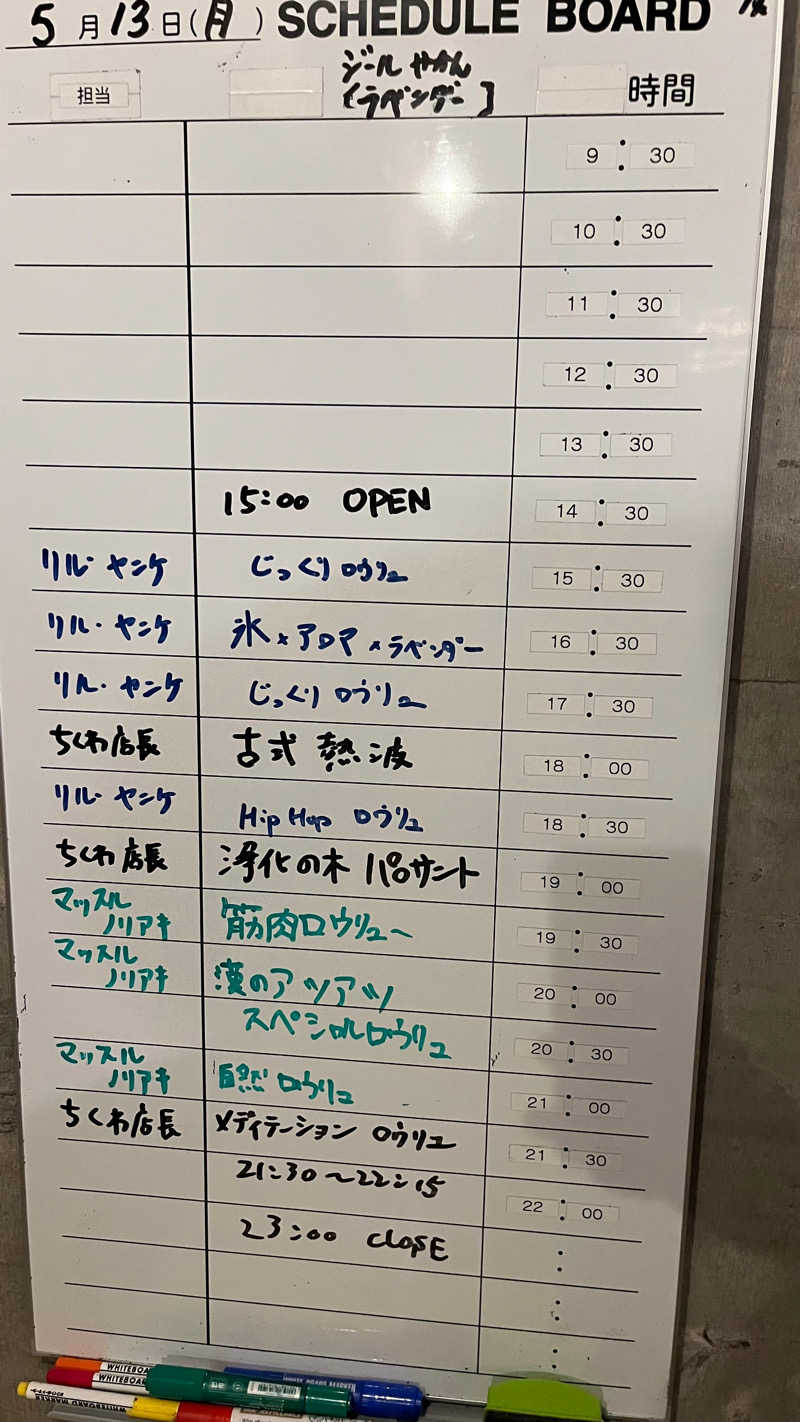 5月13日(月) SCHEDULE BOARD
ジール やかん
担当 [ラベンダー] 時間
9:30
10:30
11:30
12:30
13:30
15:00 OPEN 14:30
リル・ヤンケ じっくりロウリュ 15:30
リル・ヤンケ 氷×アロマ×ラベンダー 16:30
リル・ヤンケ じっくりロウリュ 17:30
ちくわ店長 古式 熱波 18:00
リル・ヤンケ Hip Hop ロウリュ 18:30
ちくわ店長 浄化の木 パロサント 19:00
マッスル
ノリアキ 筋肉ロウリュ〜 19:30
マッスル
ノリアキ 漢のアツアツ 20:00
スペシャルロウリュ 20:30
マッスル
ノリアキ 自然ロウリュ 21:00
ちくわ店長 メディテーション ロウリュ 21:30
21:30〜22:15 22:00
23:00 CLOSE :
:
:
WHITEBOA
WHITEBOAR